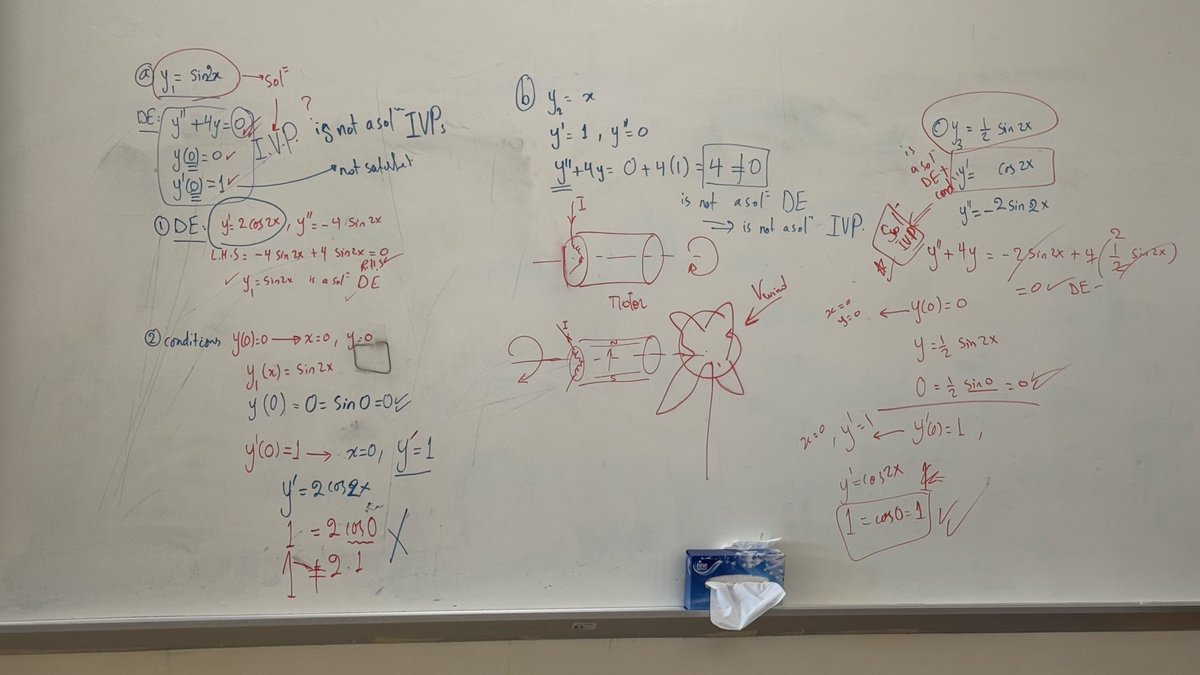 ⓐ y₁ = sin2x → solⁿ
DE: y'' + 4y = 0
I.V.P. ?
is not a solⁿ IVPs
y(0) = 0 ✓
y'(0) = 1 ✓
① DE: y' = 2 cos2x, y'' = -4 sin 2x
L.H.S = -4 sin 2x + 4 sin2x = 0
R.H.S
✓ y₁ = sin2x is a solⁿ DE
② conditions y(0)=0 → x=0, y=0
y₁(x) = sin2x
y(0) = 0 = sin0 = 0 ✓
y'(0) = 1 → x=0, y'=1
y' = 2 cos2x
1 = 2 cos0 X
1 ≠ 2.1
ⓑ y₂ = x
y' = 1, y'' = 0
y'' + 4y = 0 + 4(1) = 4 ≠ 0
is not a solⁿ DE
⇒ is not a solⁿ IVP.
I
Motor
I
N
S
Vwind
ⓒ y₃ = ½ sin 2x
is a solⁿ DE +
y' cos2x
y'' = -2 sin 2x
Solⁿ IVP
y'' + 4y = -2 sin2x + 4 (½ sin2x)
2
= 0 ✓ DE -
x=0 y=0 ← y(0) = 0
y = ½ sin 2x
0 = ½ sin0 = 0 ✓
x=0, y'=1 ← y'(0) = 1,
y' = cos2x
1 = cos0 = 1 ✓
fine